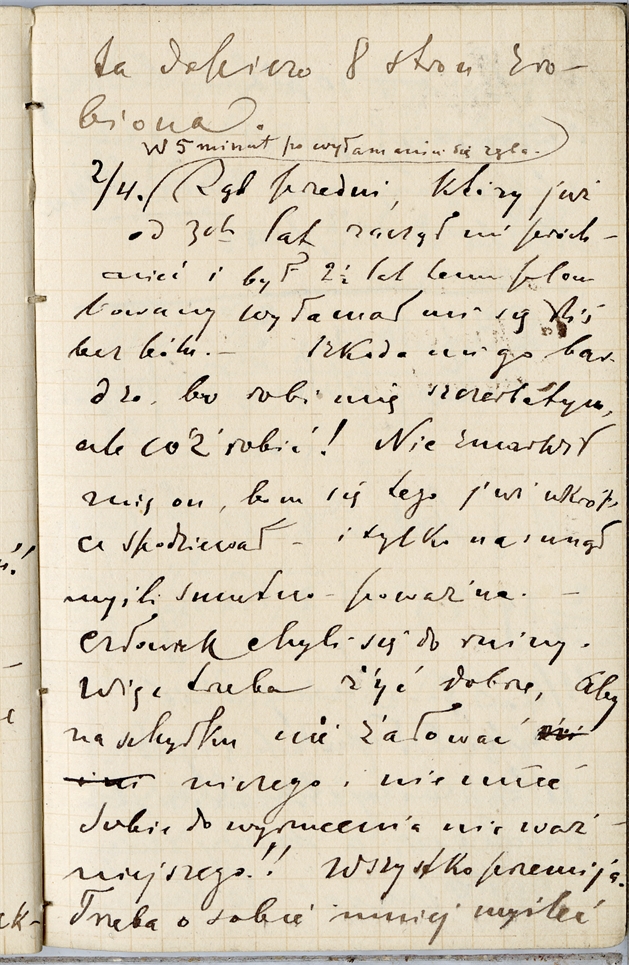 ta dopiero 8 stron zro-
biona.
W 5 minut po wyłamaniu się zęba.
2/4. (Ząb przedni, który już
od 3ch lat zaczął mi próch-
nieć i był 2½ lat temu plom
bowany wyłamał mi się dziś
bez bólu. — Szkoda mi go bar-
dzo, bo robi mię szczerbatym,
ale cóż robić! Nie zmartwił
mię on, bom się tego już wkrót-
ce spodziewał – i tylko nasunął
myśli smutno-poważne. —
Człowiek chyli się do ruiny.
Więc trzeba żyć dobrze, aby
na schyłku nie żałować
niczego i nie mieć
sobie do wyrzucenia nic waż-
niejszego!! Wszystko przemija.
Trzeba o sobie mniej myśleć